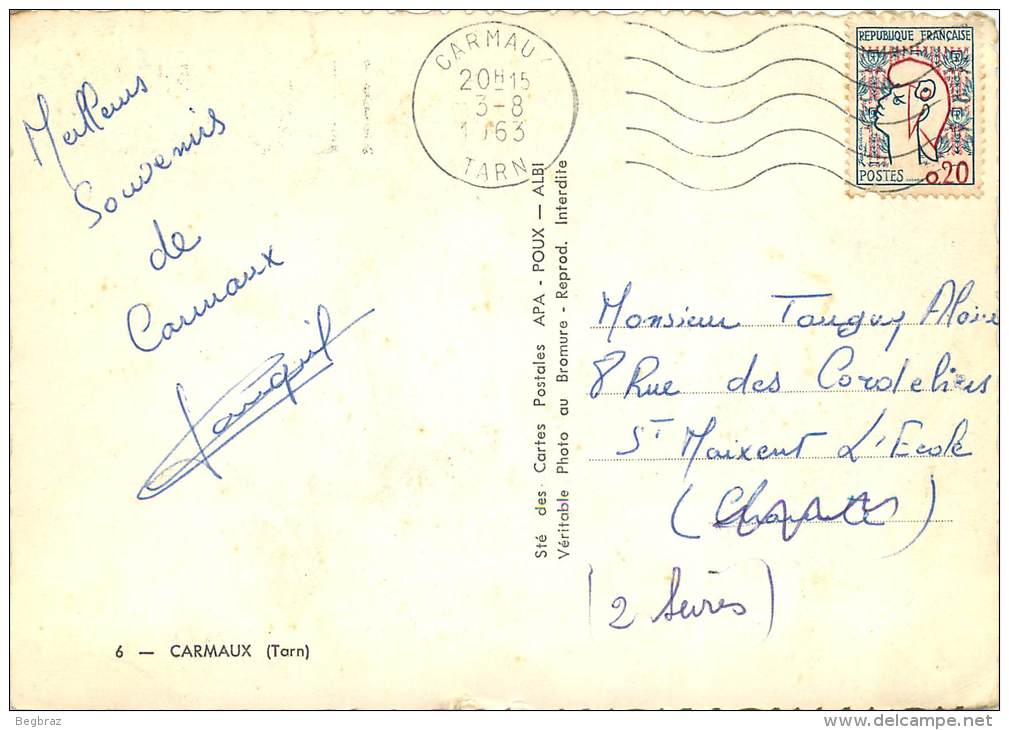 Meilleurs
Souvenirs
de
Carmaux
CARMAU
20H15
3-8
1963
TARN
REPUBLIQUE FRANÇAISE
POSTES
0.20
Sté des Cartes Postales APA - POUX — ALBI
Véritable Photo au Bromure - Reprod. Interdite
Monsieur Tanguy Alain
8 Rue des Cordeliers
ST Maixent L'Ecole
(2 Sèvres)
6 — CARMAUX (Tarn)
Begbraz
delcampe.net